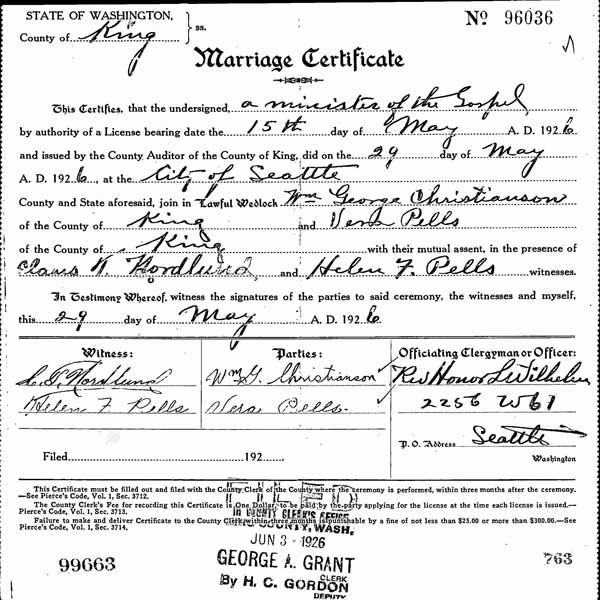 STATE OF WASHINGTON,
County of King ss.
No 96036
Marriage Certificate
This Certifies, that the undersigned, a minister of the Gospel
by authority of a License bearing date the 15th day of May A. D. 1926
and issued by the County Auditor of the County of King, did on the 29 day of May
A. D. 1926, at the City of Seattle
County and State aforesaid, join in Lawful Wedlock Wm George Christianson
of the County of King and Vera Pells
of the County of King with their mutual assent, in the presence of
K. Nordlund, and Helen F. Pells witnesses.
In Testimony Whereof, witness the signatures of the parties to said ceremony, the witnesses and myself,
this 29 day of May A. D. 1926.
Witness: Parties: Officiating Clergyman or Officer:
Nordlund Wm G. Christianson Rev Honor L Wilhelm
Helen F Pells Vera Pells. 2256 W 61
P. O. Address Seattle
Washington
Filed 192
This Certificate must be filled out and filed with the County Clerk of the County where the ceremony is performed, within three months after the ceremony.
—See Pierce's Code, Vol. 1, Sec. 3712.
The County Clerk's Fee for recording this Certificate is One Dollar, to be paid by the party applying for the license at the time each license is issued.—
Pierce's Code, Vol. 1, Sec. 3713.
Failure to make and deliver Certificate to the County Clerk within three months is punishable by a fine of not less than $25.00 or more than $300.00.—See
Pierce's Code, Vol. 1, Sec. 3714.
FILED
IN COUNTY CLERK'S OFFICE
KING COUNTY, WASH.
JUN 3 - 1926
GEORGE A. GRANT
CLERK
By H. C. GORDON
DEPUTY
99663
763